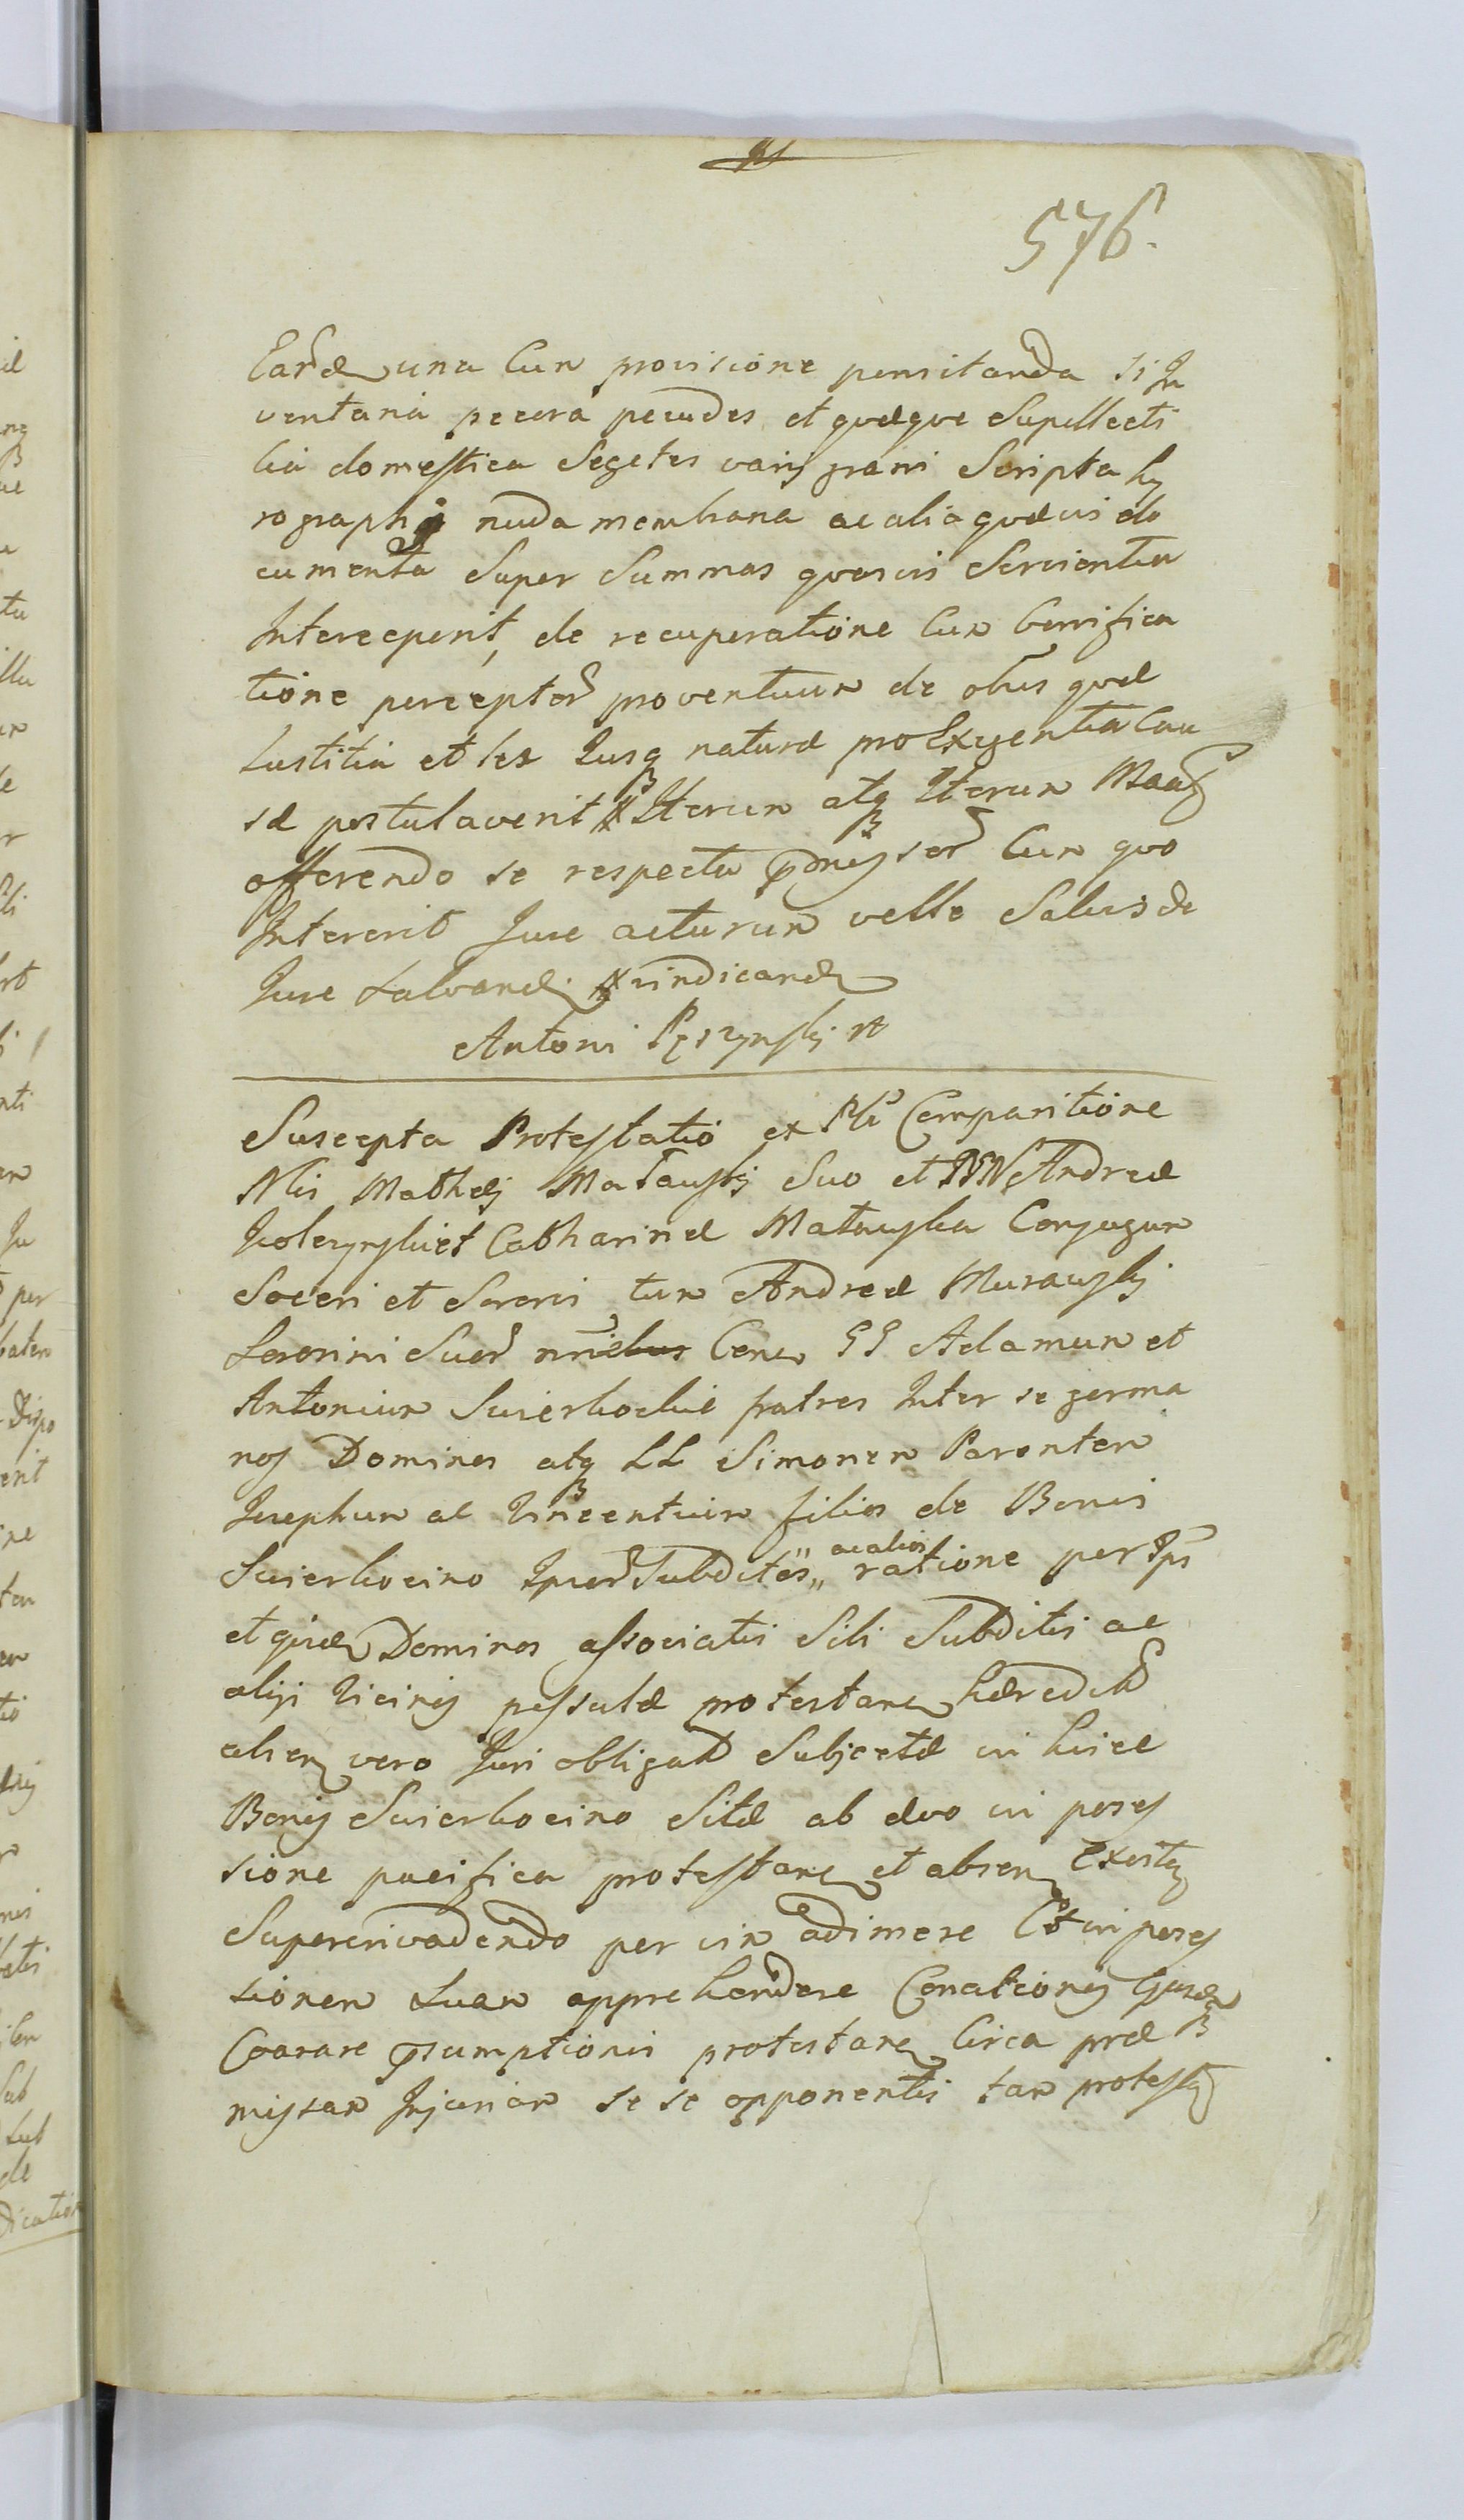 576.
Eard una Cum provisione pensitanda si In
ventaria pecora pecudes et quæque Supellecti
lia domestica Segetes varij grani Scripta hy
rographi nuda membrana ac alia quævis do
cumenta Super Summas quasvis Servientia
Intereeperit, de recuperatione Cum bonifica
tione perceptor proventuum de obus quæ
Iustitia et lex Iusq naturæ pro Exigentia Cau
sæ postulaverit Iterum atq Iterum Maaf
offerendo se respectu pdmissor Cum quo
Intererit Jure acturum velle Salvis de
Jure Salvand vindicand
Antoni
Suscepta Protestatio ex Pli Comparitione
Nlis Mathej Matauskj Suo et NN Andreæ
et Catharinæ Matauska Conjugum
Soceri et Sororis tum Andreæ Murauskj
Sororini Suor Cone GG Adamum et
Antonium Swierkockie fratres Inter se germa
nos Dominos atq LL Simonem Parentem
Josephum ac Vincentium filios de Bonis
Swierkocino Ipsor Subditos,, ac alios ratione per Ips
et quid Dominos associatis Sibi Subditis ac
alijs Vicinis pessulæ protestane hæredit
absen vero Juri obligat Subjectæ in hisce
Bonis Swierkocino Sitæ ab ævo in posses
sione pacifica protestane et absen Existen
Superinvadendo per vim adimere Et in posses
sionem Suam apprehendere Conationis Ejusdq
Coarare psumptionis protestane Circa præ
missam Injuriam se se opponentis tam protest